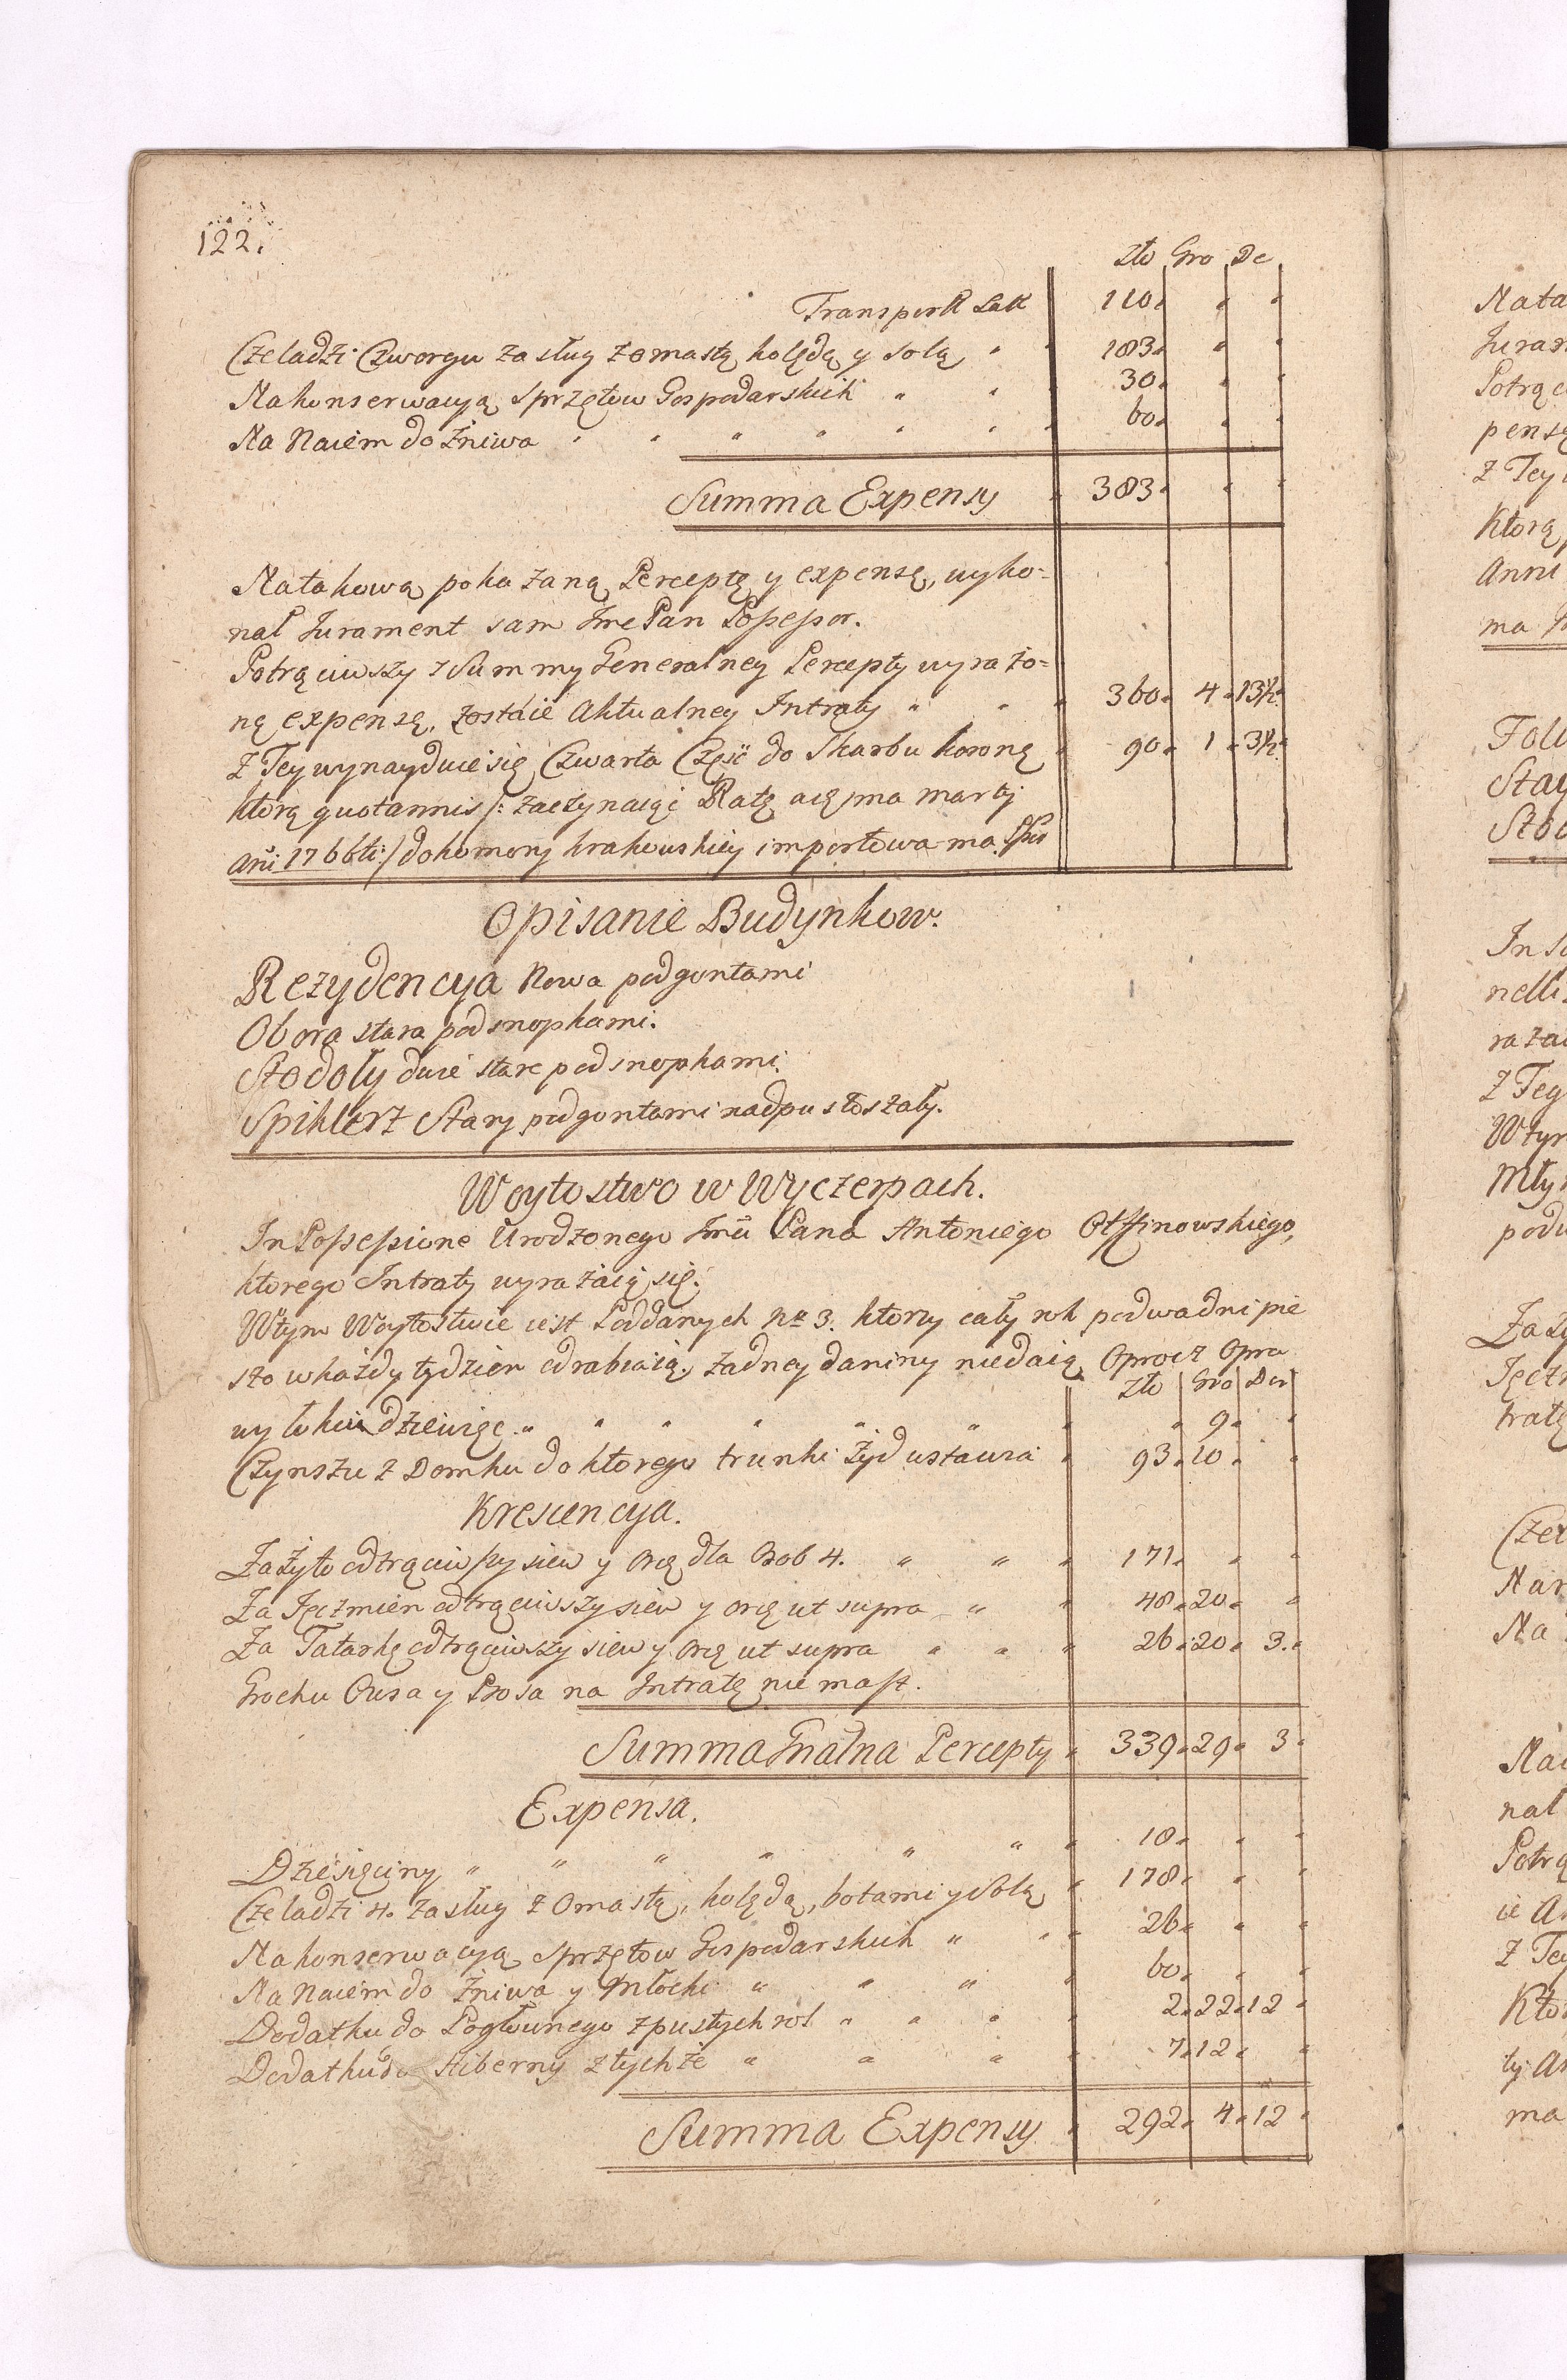 122.
Zło Gro De
Transport Lat. 110
Czeladzi Czworgu zasług z omastą kolędą y solą 183
Na konserwacyą Sprzętow Gospodarskich 30
Na Naiem do Żniwa 60
Summa Expensy 383
Na takową pokazaną Perceptę y expensę, wyko-
nał Jurament sam Jmć Pan Possessor.
Potrąciwszy z Summy Generalney Percepty wyrażo-
ną expensę, zostaie Aktualney Intraty 360 4 13½
Z Tey wynayduie się Czwarta Część do Skarbu koronę 90 1 3½
ktorą quotannis /: zaczynaiąc Ratę a 1ma Martij
Ani 1766ti :/ do komory krakowskiey importowa ma
Opisanie Budynkow.
Rezydencya Nowa pod gontami
Obora stara pod snopkami.
Stodoły dwie stare pod snopkami.
Spiklerz Stary pod gontami nadpustoszały.
Woytostwo w Wyczerpach.
In Possessione Urodzonego Jmci Pana Antoniego Otffinowskiego,
ktorego Intraty wyrażaią się.
W tym Woytostwie iest Poddanych Nro 3. ktorzy cały rok po dwa dni pie
szo w każdy tydzien odrabiaią. żadney daniny niedaią Oprocz Opra
Zło Gro De
wy łokci dziewięc 9
Czynszu z Domku do ktorego trunki Żyd ustawia 93 10
Krescencya.
Za Żyto odtrąciwszy siew y Orę dla Osob 4. 171
Za Jęczmien odtrąciwszy siew y orę ut supra 48 20
Za Tatarkę odtrąciwszy siew y orę ut supra 26 20 3
Grochu Owsa y Prosa na Intratę nie masz.
Summa Gnałna Percepty 339 29 3
Expensa.
Dziesięciny 18
Czeladzi 4. zasług z Omastą, kolędą, botami y Solą 178
Na konserwacyą Sprzętow Gospodarskich 26
Na Naiem do Żniwa y Młocki 60
Dodatku do Pogłownego z pustych rol 2 22 12
Dodatku do Hiberny z tychże 7 12
Summa Expensy 292 4 12